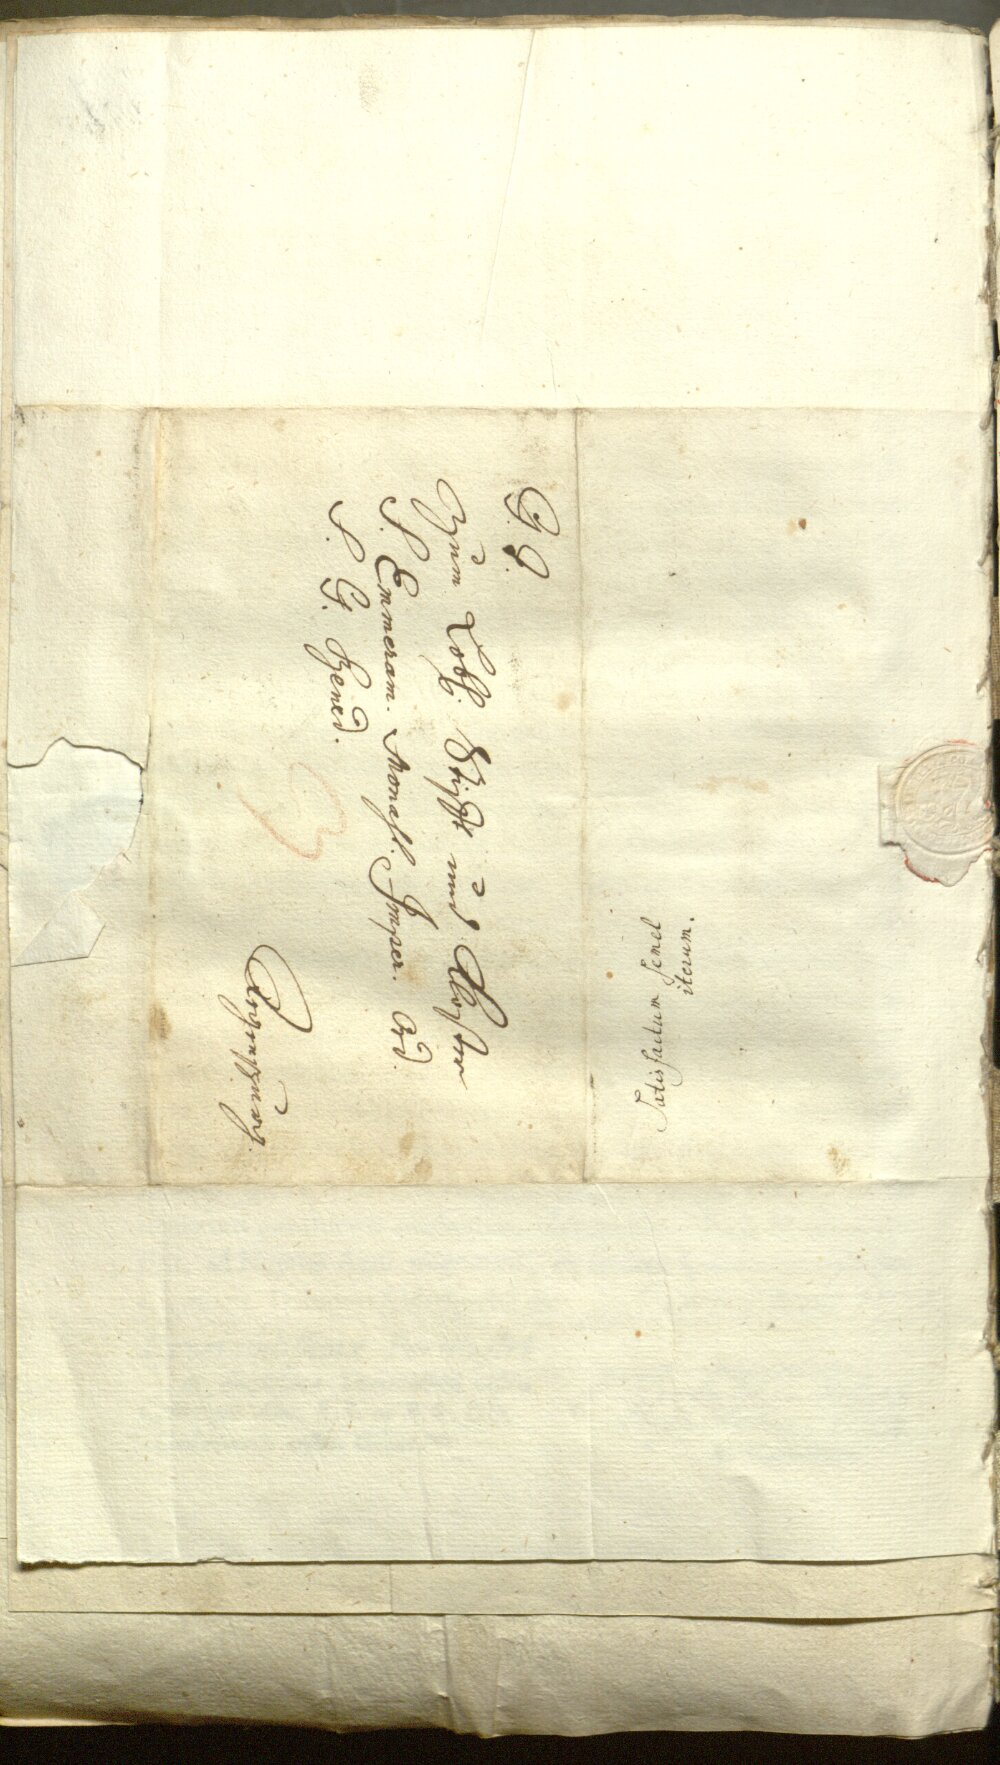 Zum Löbl. Stifft und Closter
S. Emmeram. Monast. Imper. Ord.
S. P. Bened.
Regenspurg.
Satisfactum semel
iterum.